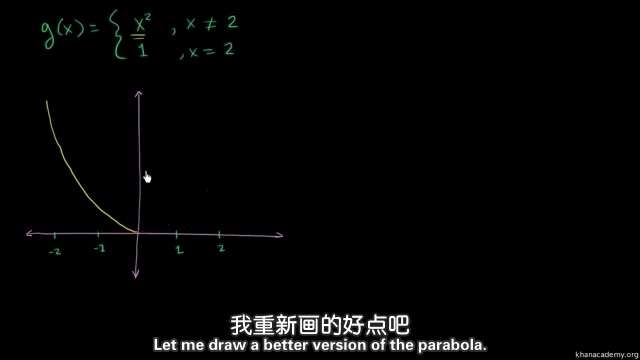 g(x) = { x² , x ≠ 2
1 , x = 2
-2 -1 1 2
我重新画的好点吧
Let me draw a better version of the parabola.
khanacademy.org